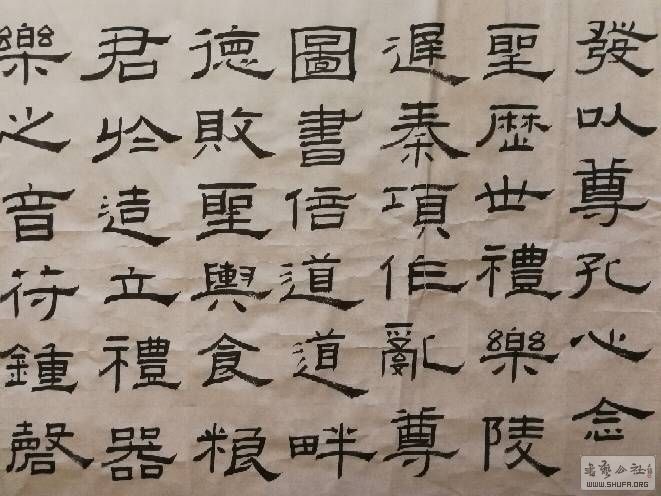 發以尊孔心念
聖歷世禮樂陵
遲秦項作亂尊
圖書倍道道畔
德敗聖輿食粮
君於造立禮器
樂之音苻鍾磬
WWW.SHUFA.ORG